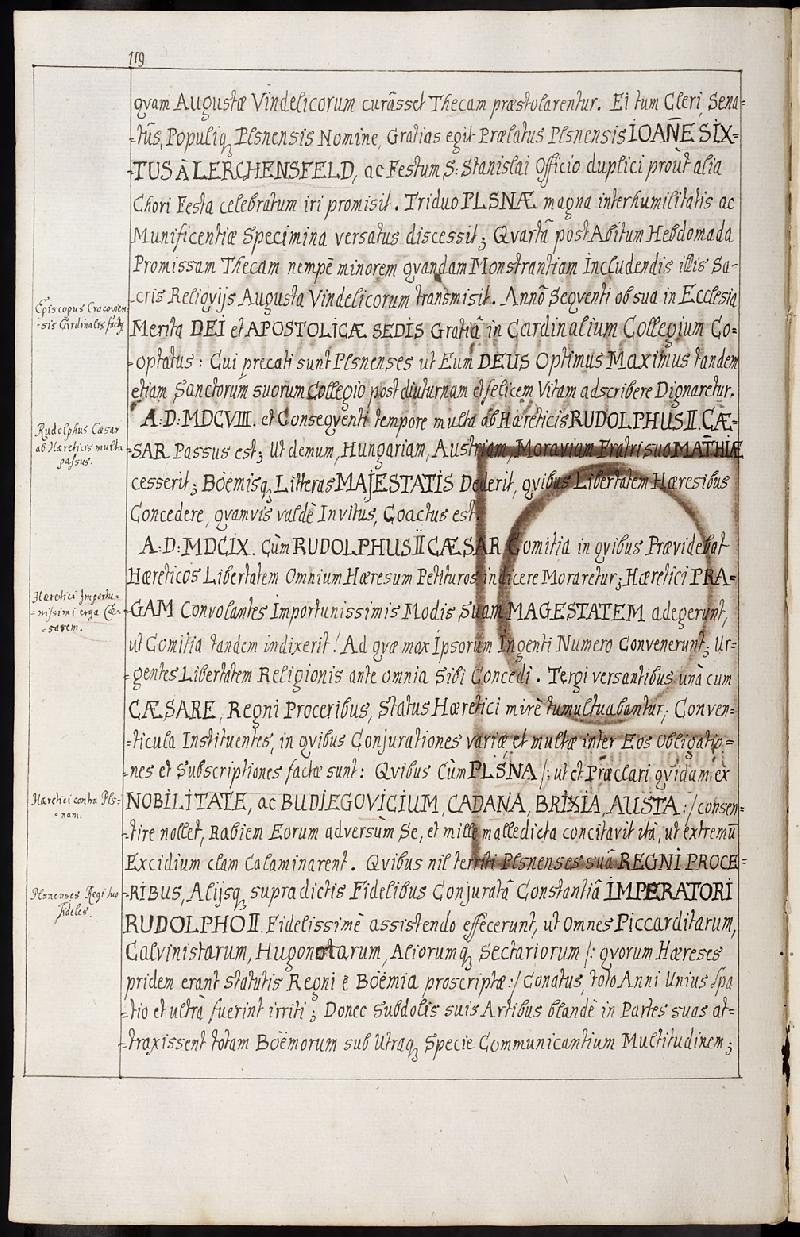 119
qvam Augustæ Vindelicorum curâsset Thecam præstolarentur. Ei tum Cleri, Sena=
-tûs, Populiq, Plsnensis Nomine, Gratias egit Prælatus Plsnensis IOAÑE SIX-
-TUS À LERCHENSFELD, ac Festum S: Stanislai Officio duplici proût alia
Chori Festa celebratum iri promisit. Triduo PLSNÆ magna inter humilitatis ac
Munificentiæ Specimina versatus discessit; Qvartâ post Abitum Hebdomada
Promissam Thecam nempè minorem qvandam Monstrantiam Includendis illis Sa-
-cris Religvijs Augusta Vindelicorum transmisit. Annô Seqventi ob sua in Ecclesia
Episcopus Cracovien
-sis Cardinalis fact9
Merita DEI et APOSTOLICÆ SEDIS Gratiâ in Cardinalium Collegium Co-
-optatus: Cui precati sunt Plsnenses ut Eum DEUS Optimus Maximus tandem
etiam Sanctorum suorum Collegio post diuturnam et felicem Vitam adscribere Dignaretur.
A:D:MDCVIII. et Conseqventi tempore multa ab Hæreticis RUDOLPHUS II. CÆ-
Rudolphus Cæsar
ab Hæreticis multa
passus.
-SAR Passus est; Ut demum, Hungariam, Austriam, Moraviam Fratri suo MATHIÆ
cesserit; Boëmisq, Litteras MAJESTATIS Dederit, qvibus Libertatem Hæresibus
Concedere, qvamvis valdè Invitus, Coactus est.
A:D:MDCIX. Cùm RUDOLPHUS II CÆSAR Comitia in qvibus Prævidebat
Hæreticos Libertatem Omnium Hæresum Petituros indicere Moraretur; Hæretici PRA-
Hæretici Importu-
-nissimi erga Cæ-
-sarem.
-GAM Convolantes Importunissimis Modis Suam MAGESTATEM adegerunt,
ut Comitia tandem indixerit! Ad qvæ max Ipsorum Ingenti Numero Convenerunt; Ur-
-gentes Libertatem Religionis ante omnia Sibi Concedi. Tergiversantibus unà cum
CÆSARE, Regni Proceribus, Status Hæretici mirè tumultuabantur; Conven-
-ticula Instituentes, in qvibus Conjurationes variæ et multæ inter Eos Obligatio-
-nes et Subscriptiones factæ sunt: Qvibus Cùm PLSNA /: ut et Præclari qvidam ex
Hæretici contra Pls-
-nam.
NOBILITATE, ac BUDIEGOVICIUM, CADANA, BRIXIA, AUSTA :/ consen-
-tire nollet, Rabiem Eorum adversùm Se, et mille malledicta concitavit ità, ut extremũ
Excidium clam Calaminarent. Qvibus nil territi Plsnenses suâ REGNI PROCE-
Plsnenses Regi suo
fideles.
-RIBUS, Alijsq, supradictis Fidelibus Conjuratâ Constantiâ IMPERATORI
RUDOLPHO II Fidelissimè assistendo effecerunt, ut Omnes Piccarditarum,
Calvinistarum, Hugonotarum, Aliorumq, Sectariorum /: qvorum Hæreses
pridem erant statutis Regni è Boëmia proscriptæ :/ Conatus, toto Anni Unius spa
-tio et ultrà, fuerint irriti; Donec Subdolis suis Artibus blandè in Partes suas at-
-traxissent totam Boëmorum sub Utraq, Specie Communicantium Multitudinem;